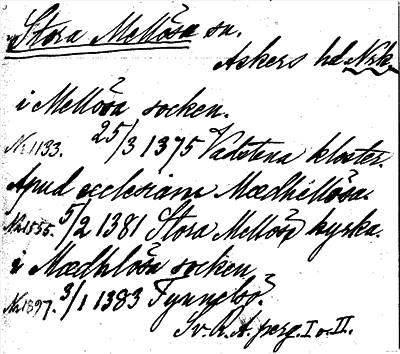 Stora Mellösa sn.
Askers hd Nrk.
i Mellösa socken.
Nr 1133. 25/3 1375 Vadstena kloster.
Apud ecclesiam Mædhellösa.
Nr 1555. 5/2 1381 Stora Mellösa kyrka.
i Mædhlösa socken
Nr 1897. 3/1 1383 Fynnelöp.
Sv. R. A. perg. I o. II.